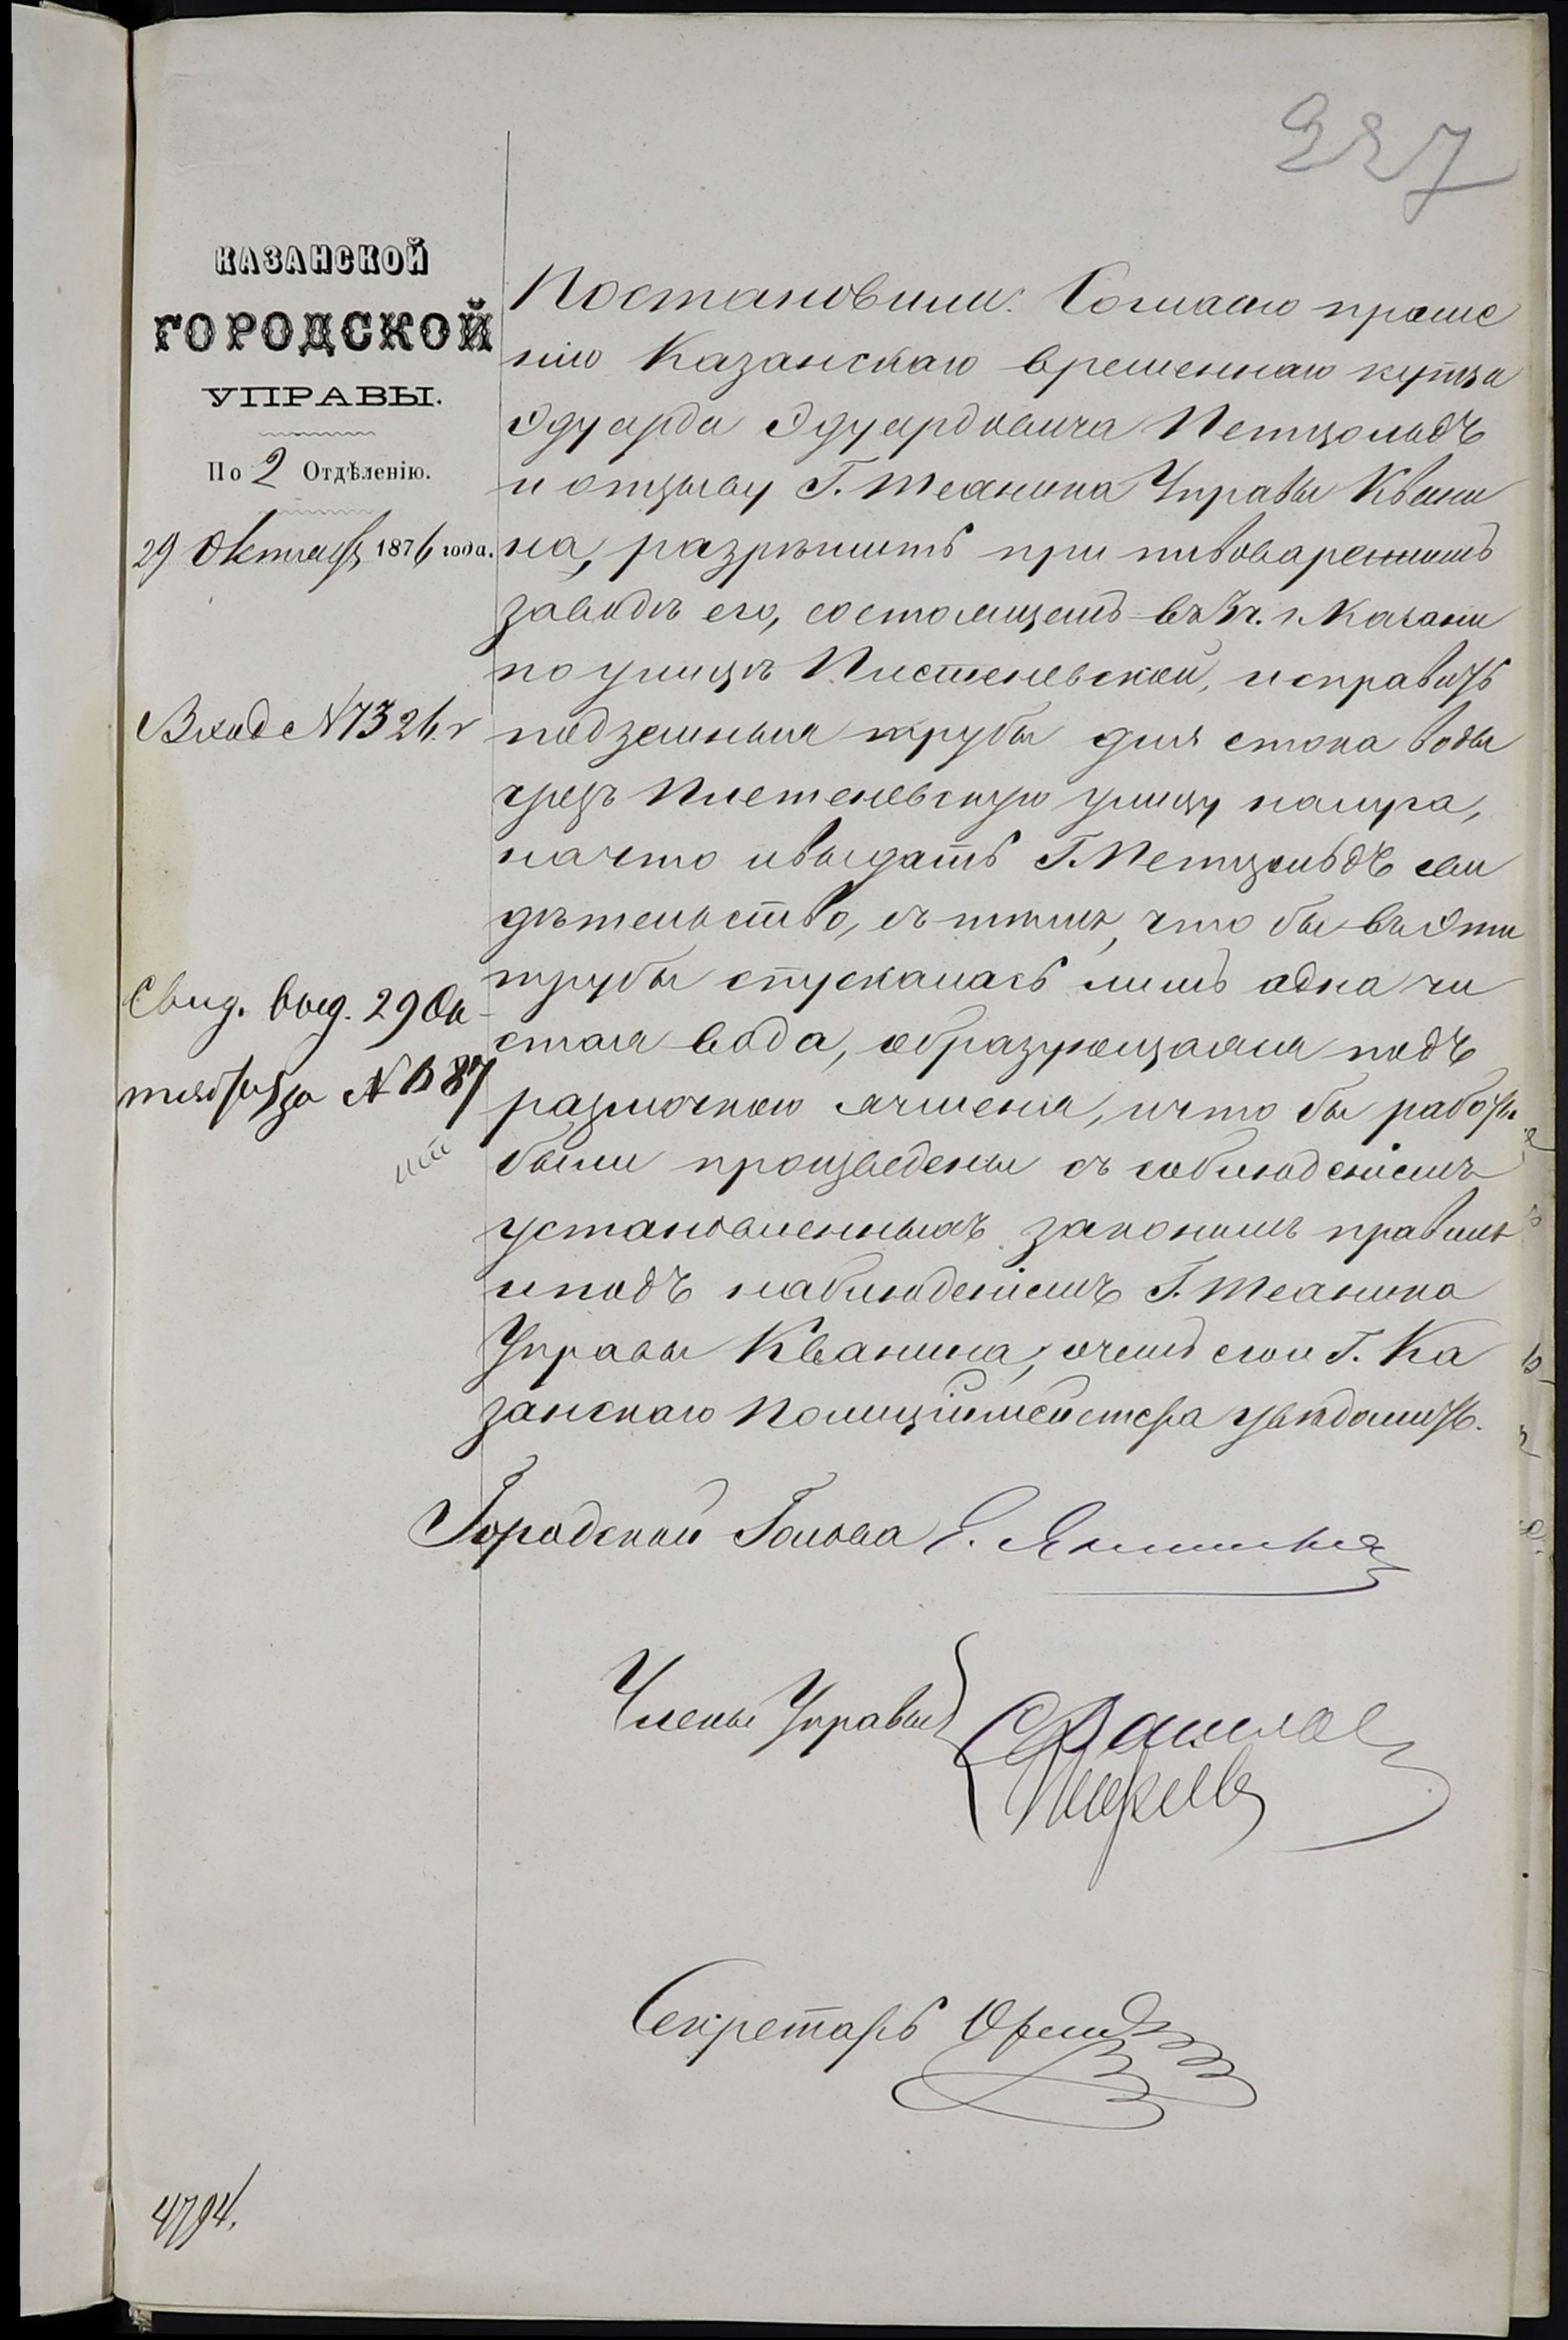 227
КАЗАНСКОЙ
ГОРОДСКОЙ
УПРАВЫ.
По 2 Отдѣленію.
29 Октября 1876 года.
Вход № 7326.
Свид. выд. 29 Ок-
тября за № 1387
Постановили: Согласно проше
нію Казанскаго временнаго купца
Эдуарда Эдуардовича Петцольдъ
и отзыву Г. Техника Управы Квани
на, разрѣшить при пивоваренномъ
заводѣ его, состоящемъ въ 3 ч. г. Казани
по улицѣ Плетеневской, исправить
подземныя трубы для стока воды
чрезъ Плетеневскую улицу
на что и выдать Г. Петцольдъ сви
дѣтельство, съ тѣмъ, что бы въ эти
трубы спускалась лишь одна чи
стая вода, образующаяся подъ
размочкою ячменя, и что бы работы
были произведены съ соблюденіемъ
установленныхъ закономъ правилъ
и подъ наблюденіемъ Г. Техника
Управы Кванина, о чемъ и Г. Ка
занскаго Полиціймейстера увѣдомить.
Городской Голова Е. Янишевскій
Члены Управы
Секретарь
4794.